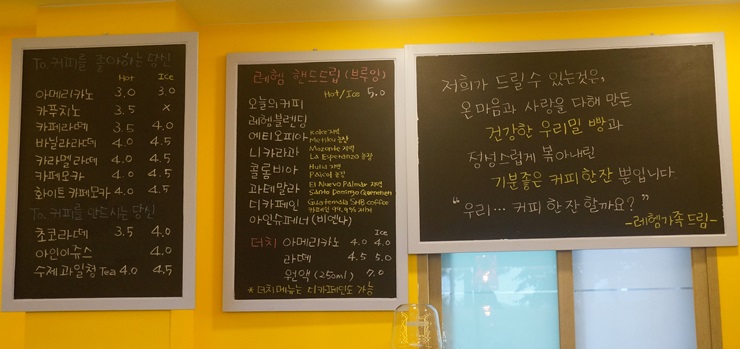 To. 커피를 좋아하는 당신
Hot Ice
아메리카노 3.0 3.0
카푸치노 3.5 x
카페라떼 3.5 4.0
바닐라라떼 4.0 4.5
카라멜라떼 4.0 4.5
카페모카 4.0 4.5
화이트카페모카 4.0 4.5
To. 커피를 안드시는 당신
초코라떼 3.5 4.0
아인이쥬스 4.0
수제 과일청 Tea 4.0 4.5
레헴 핸드드립 (브루잉)
Hot/Ice 5.0
오늘의커피
레헴블렌딩
에티오피아 Koke 지역
농장
니카라과 Mozonte 지역
La Esperanza 농장
콜롬비아 Huila 지역
농장
과테말라 El Nuevo Palmar 지역
Santo Domingo
디카페인 Guatemala SHB coffee
카페인 99.9% 제거
아인슈페너 (비엔나)
더치 아메리카노 4.0 4.0
라떼 4.5 5.0
원액 (250ml) 7.0
* 더치메뉴는 디카페인도 가능
저희가 드릴수 있는것은,
온마음과 사랑을 다해 만든
건강한 우리밀 빵과
정성스럽게 볶아내린
기분좋은 커피한잔 뿐입니다
"우리... 커피 한잔 할까요?"
-레헴가족 드림-